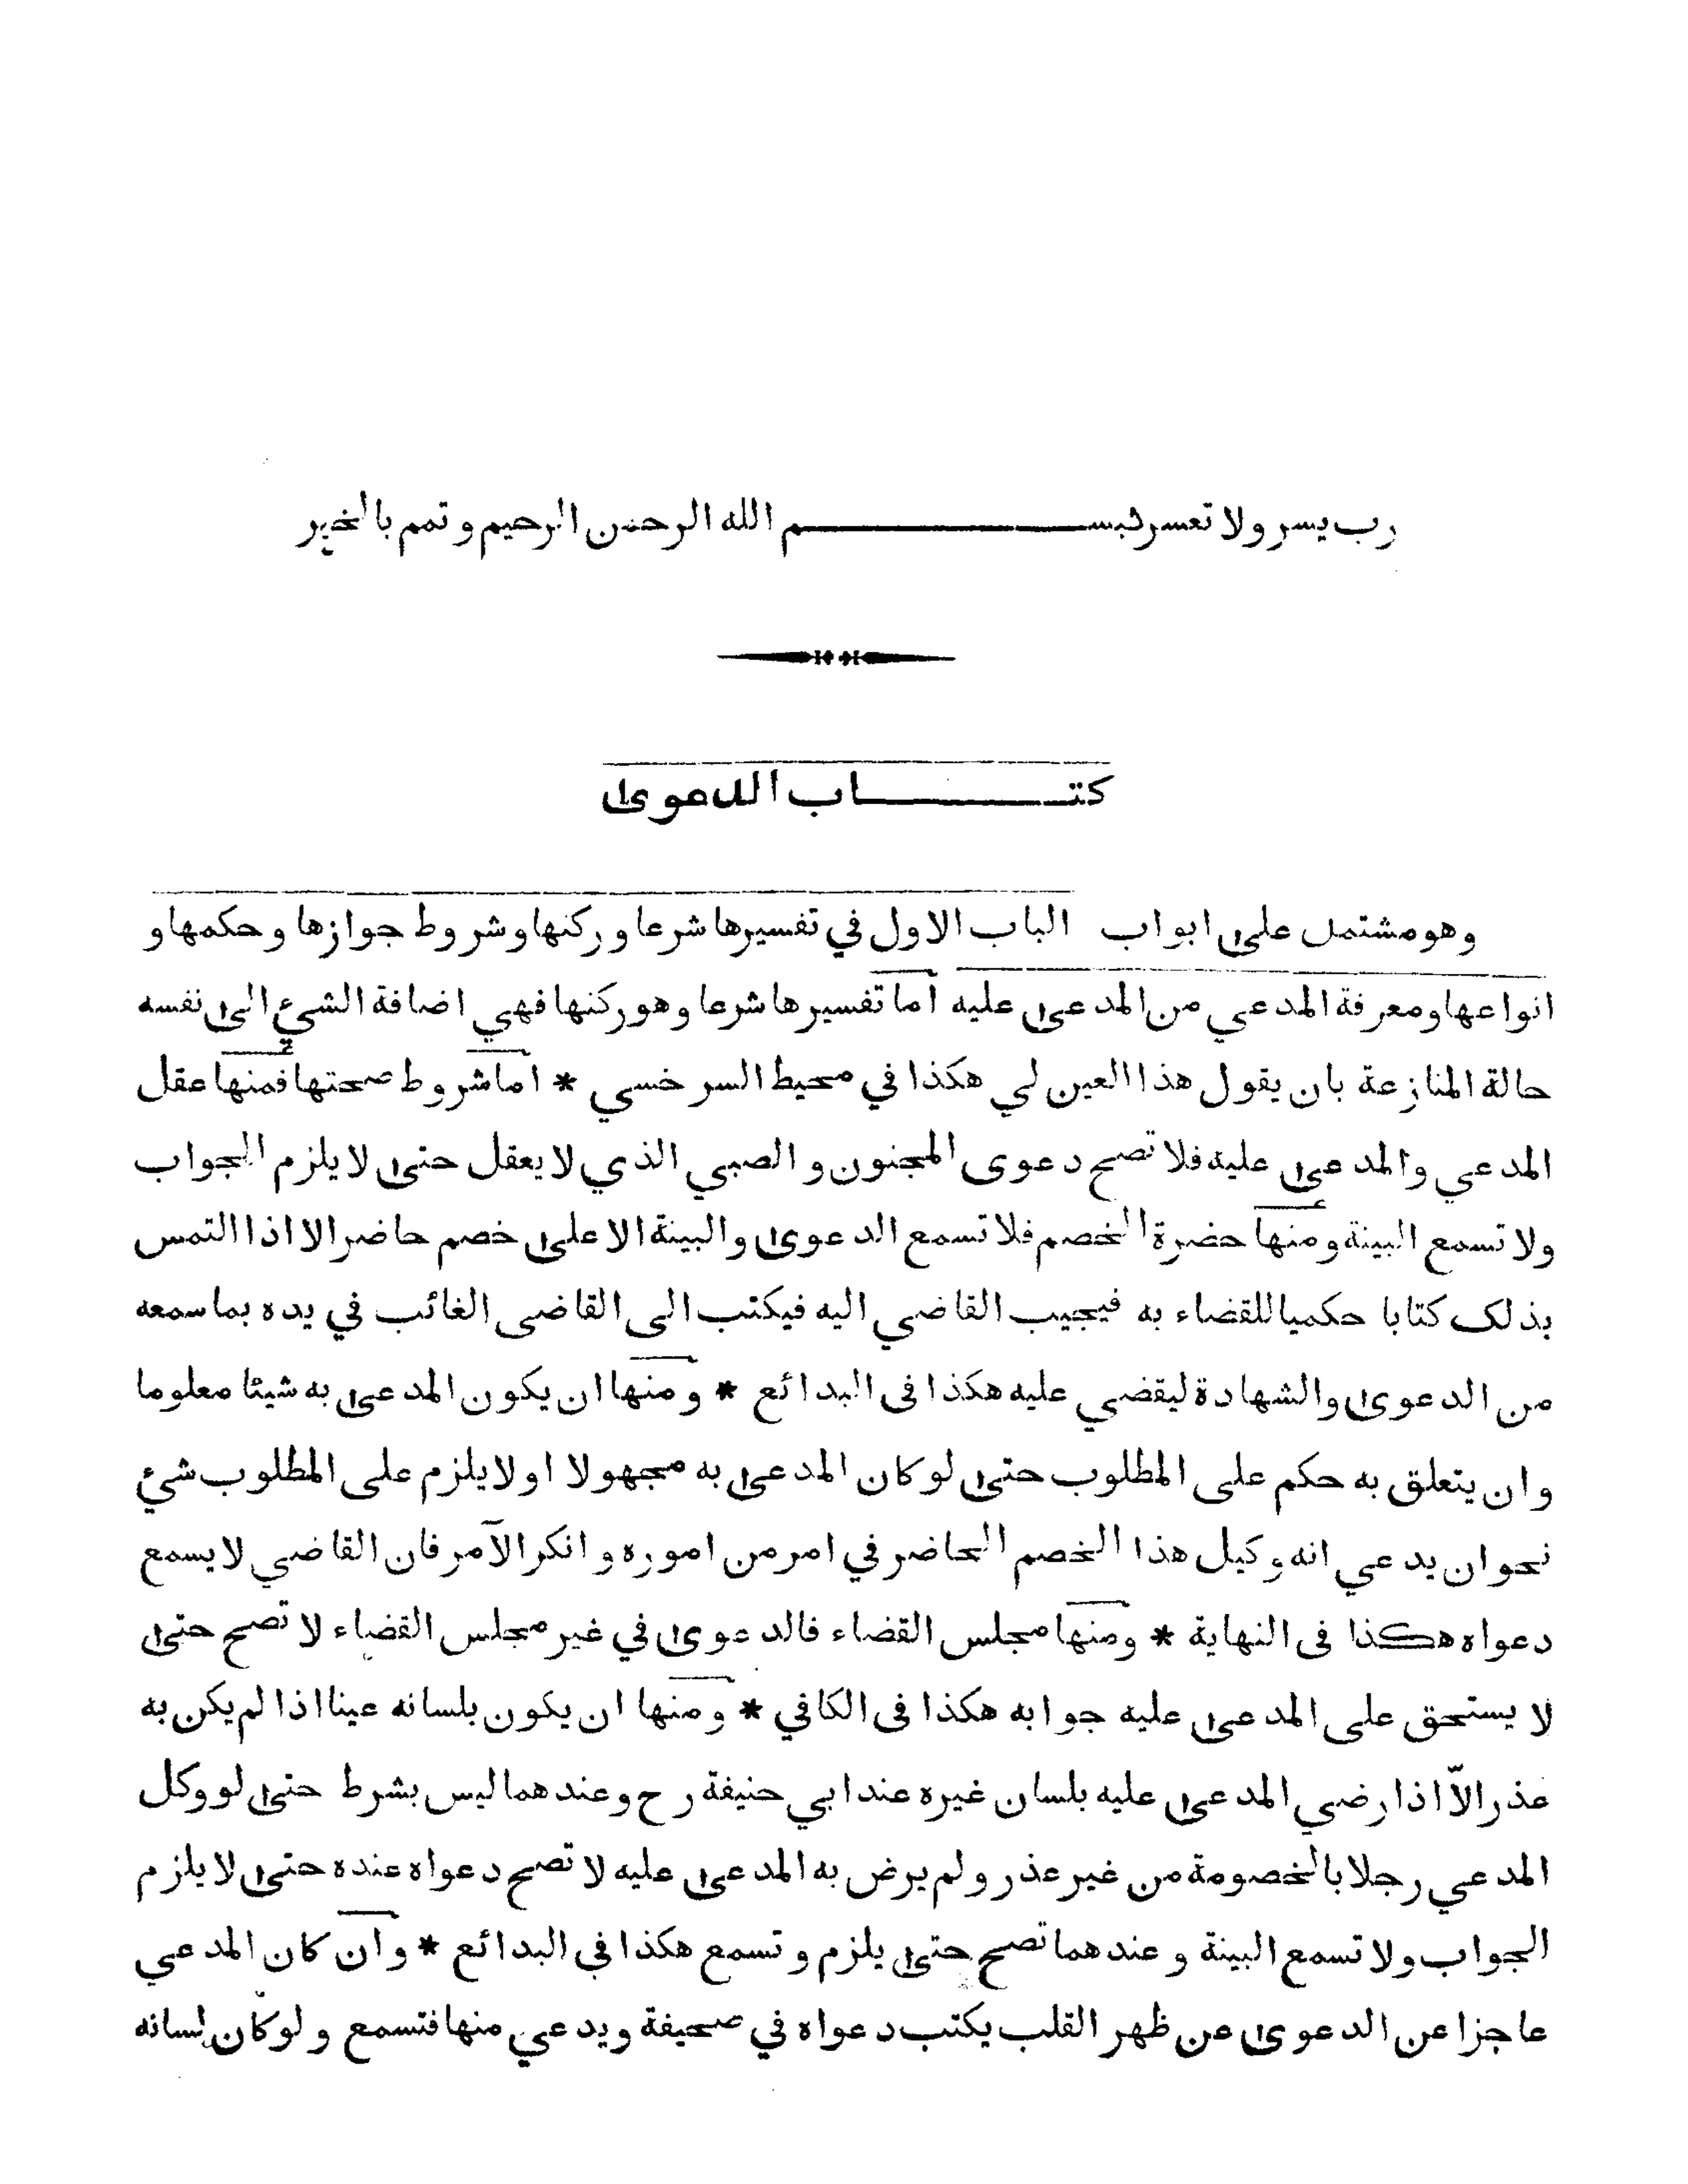 رب يسر ولا تعسر فبسم الله الرحمن الرحيم و تمم بالخير
كتاب الدعوى
وهو مشتمل على ابواب الباب الاول في تفسيرها شرعا و ركنها و شروط جوازها و حكمها و
انواعها ومعرفة المدعي من المدعى عليه اما تفسيرها شرعا وهو ركنها فهي اضافة الشيء الى نفسه
حالة المنازعة بان يقول هذا العين لي هكذا في محيط السرخسي * اما شروط صحتها فمنها عقل
المدعي والمدعى عليه فلا تصح دعوى المجنون و الصبي الذي لا يعقل حتى لا يلزم الجواب
ولا تسمع البينة ومنها حضرة الخصم فلا تسمع الدعوى والبينة الا على خصم حاضر الا اذا التمس
بذلك كتابا حكميا للقضاء به فيجيب القاضي اليه فيكتب الى القاضى الغائب في يده بما سمعه
من الدعوى والشهادة ليقضي عليه هكذا فى البدائع * ومنها ان يكون المدعى به شيئا معلوما
و ان يتعلق به حكم على المطلوب حتى لو كان المدعى به مجهولا او لا يلزم على المطلوب شيء
نحو ان يدعي انه وكيل هذا الخصم الحاضر في امر من اموره و انكر الآمر فان القاضي لا يسمع
دعواه هكذا فى النهاية * ومنها مجلس القضاء فالدعوى في غير مجلس القضاء لا تصح حتى
لا يستحق على المدعى عليه جوابه هكذا فى الكافي * ومنها ان يكون بلسانه عينا اذا لم يكن به
عذر الّا اذا رضي المدعى عليه بلسان غيره عند ابي حنيفة رح وعندهما ليس بشرط حتى لو وكل
المدعي رجلا بالخصومة من غير عذر و لم يرض به المدعى عليه لا تصح دعواه عنده حتى لا يلزم
الجواب ولا تسمع البينة و عندهما تصح حتى يلزم و تسمع هكذا في البدائع * وان كان المدعي
عاجزا عن الدعوى عن ظهر القلب يكتب دعواه في صحيفة ويدعي منها فتسمع و لو كان لسانه